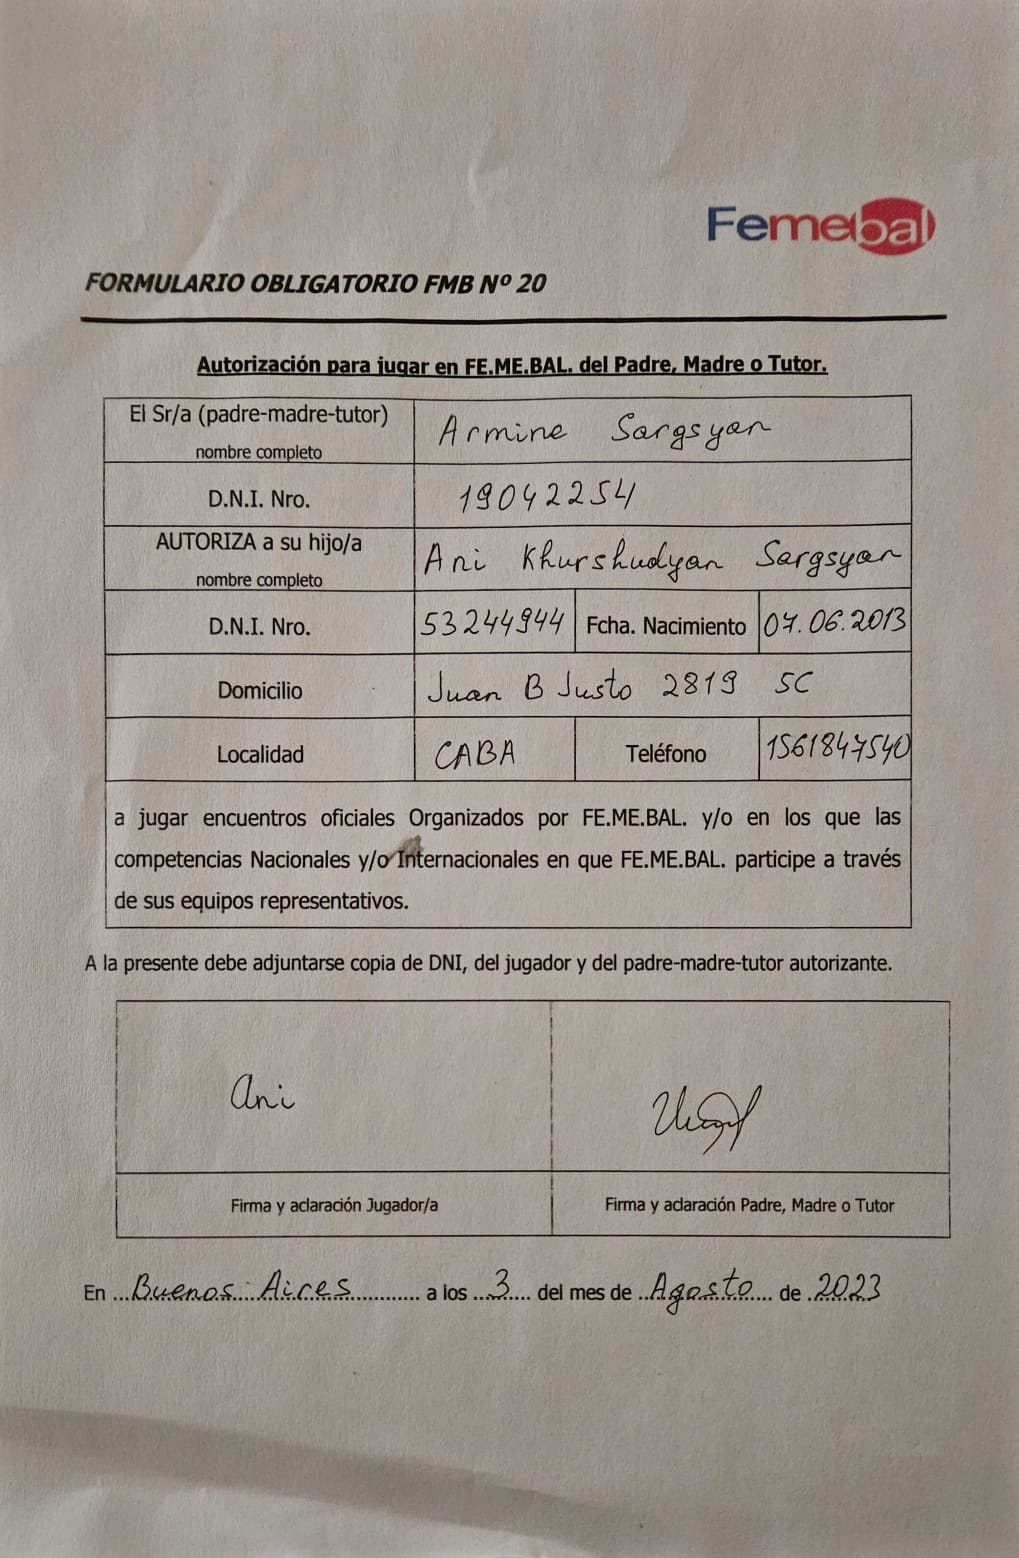 Femebal
FORMULARIO OBLIGATORIO FMB Nº 20
Autorización para jugar en FE.ME.BAL. del Padre, Madre o Tutor.
El Sr/a (padre-madre-tutor) nombre completo Armine Sargsyan
D.N.I. Nro. 19042254
AUTORIZA a su hijo/a nombre completo Ani Khurshudyan Sargsyan
D.N.I. Nro. 53244944 Fcha. Nacimiento 07.06.2013
Domicilio Juan B Justo 2819 5C
Localidad CABA Teléfono 1561847540
a jugar encuentros oficiales Organizados por FE.ME.BAL. y/o en los que las
competencias Nacionales y/o Internacionales en que FE.ME.BAL. participe a través
de sus equipos representativos.
A la presente debe adjuntarse copia de DNI, del jugador y del padre-madre-tutor autorizante.
Ani
Firma y aclaración Jugador/a Firma y aclaración Padre, Madre o Tutor
En ...Buenos Aires............ a los ...3.... del mes de ..Agosto... de .2023